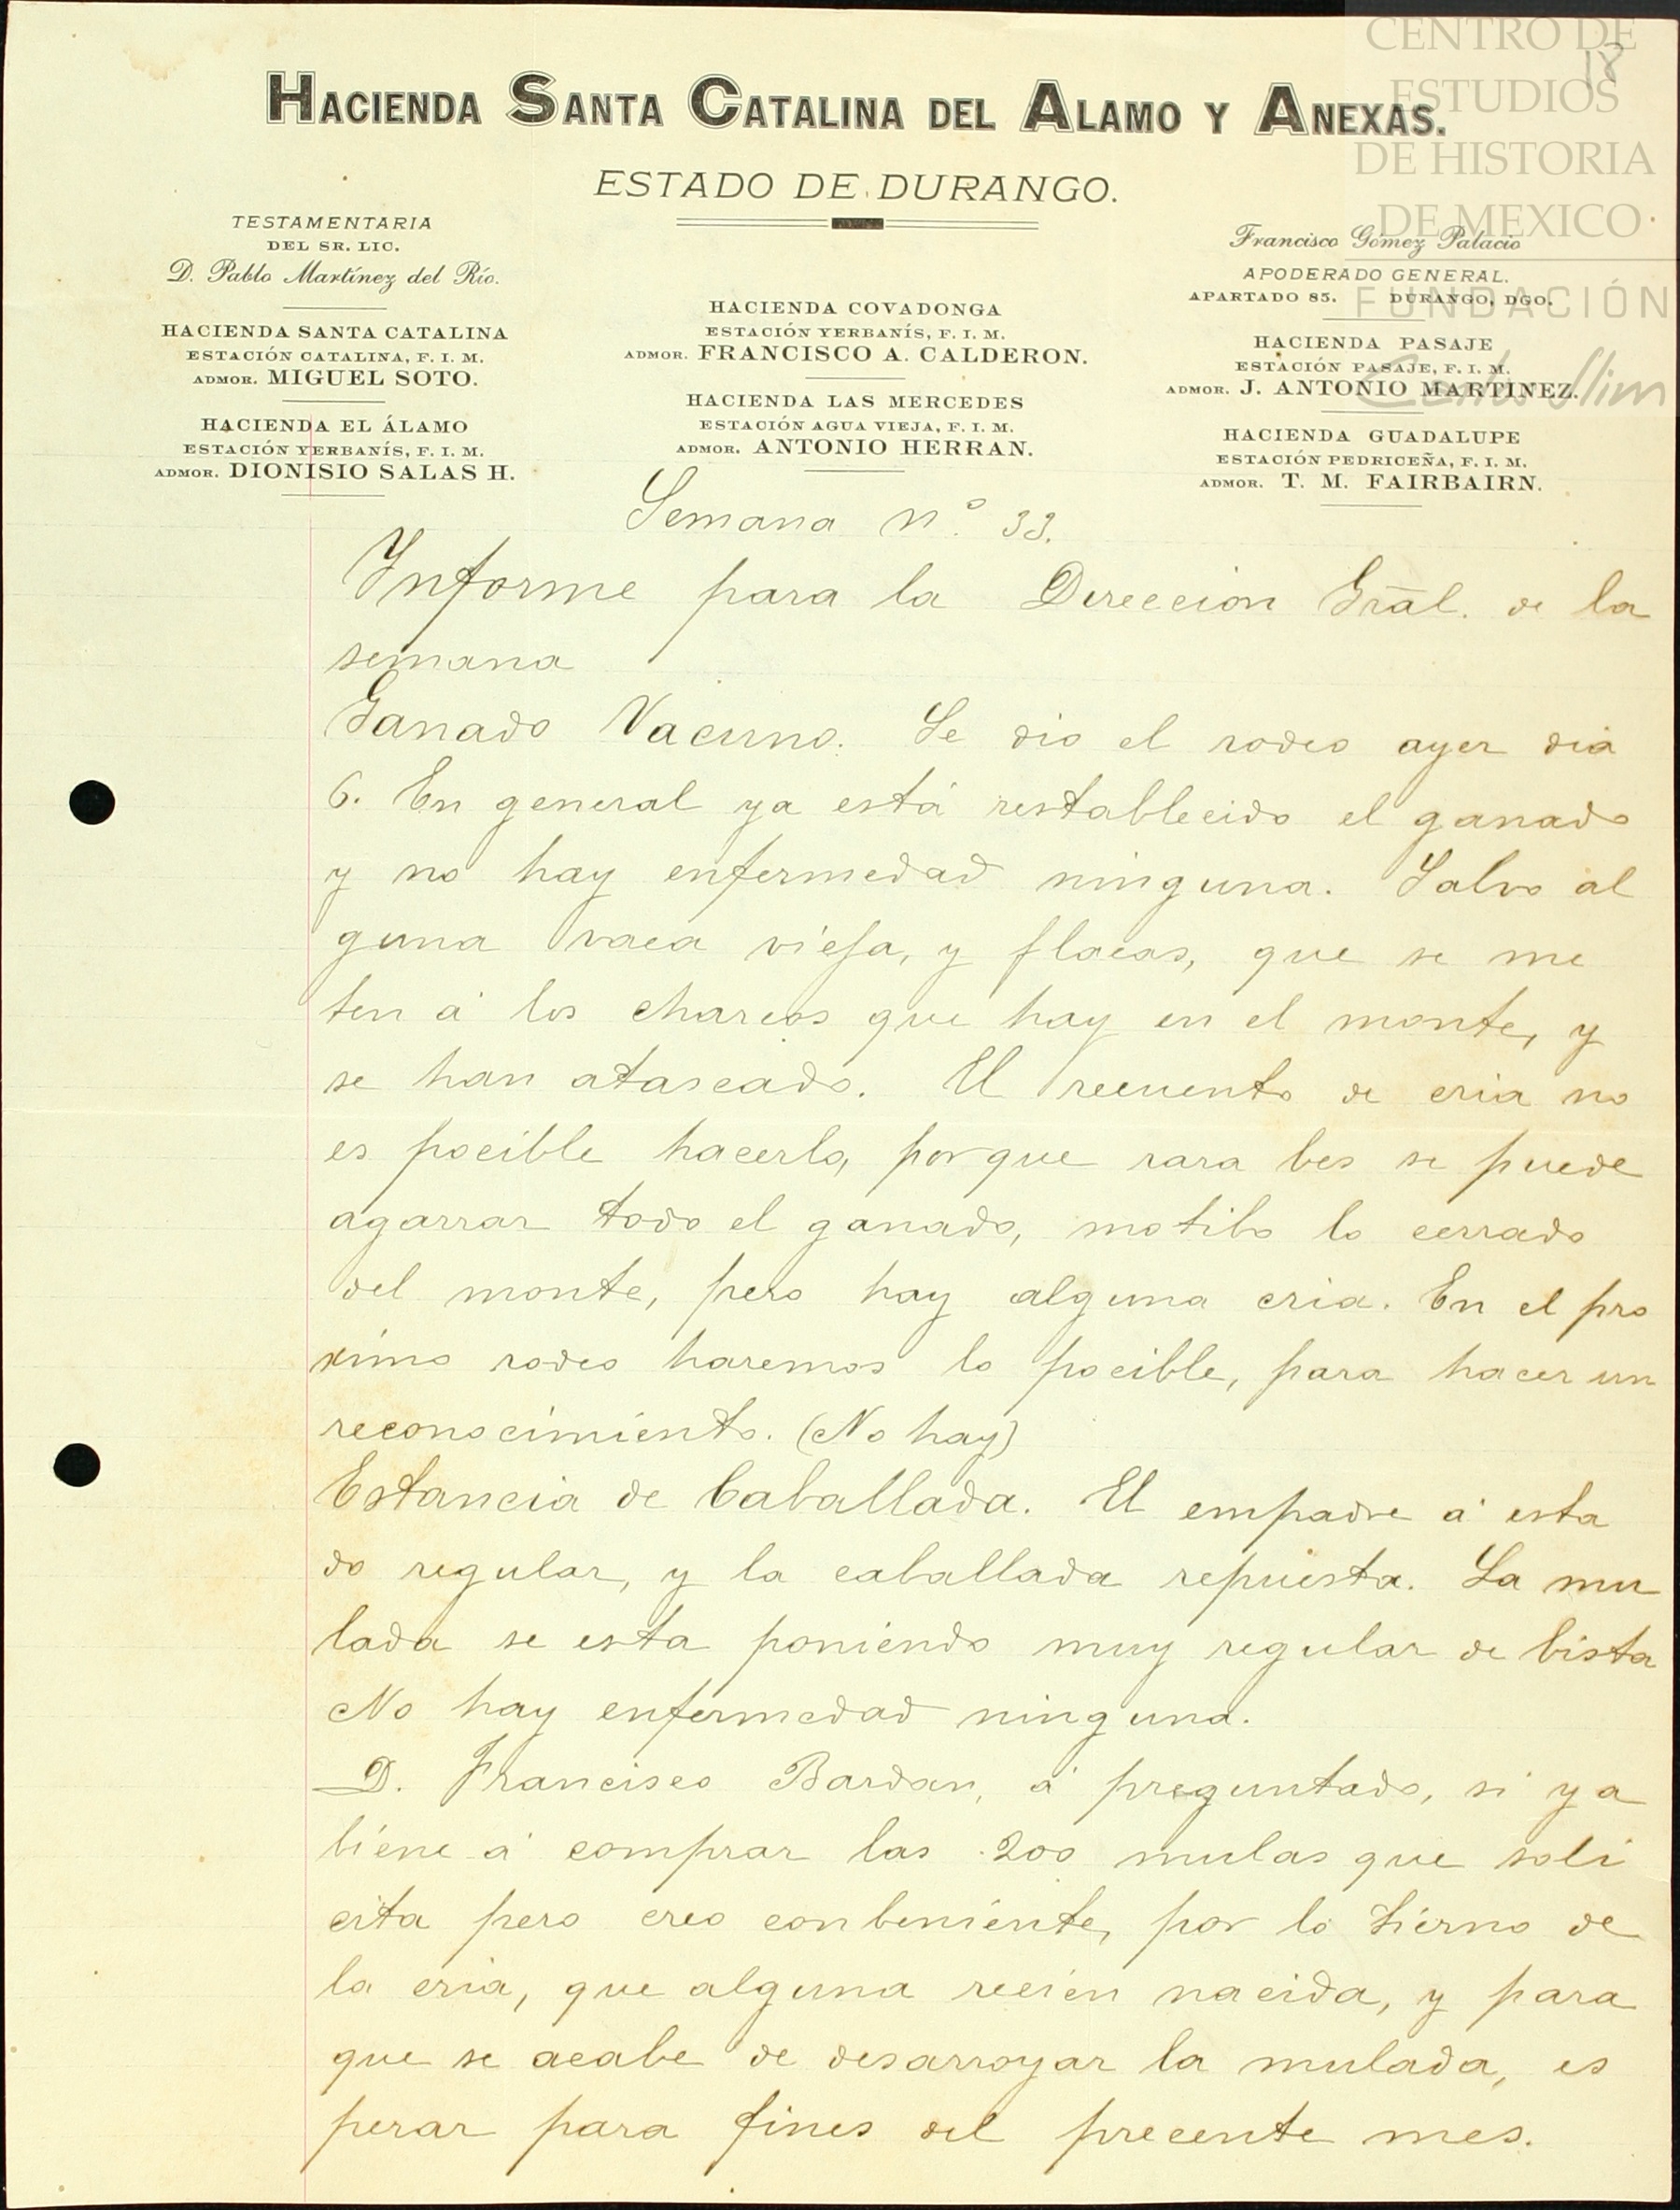 CENTRO DE
ESTUDIOS
DE HISTORIA
DE MEXICO
FUNDACIÓN
Carlos Slim
18
HACIENDA SANTA CATALINA DEL ALAMO Y ANEXAS.
ESTADO DE DURANGO.
TESTAMENTARIA
DEL SR. LIC.
D. Pablo Martínez del Río.
HACIENDA SANTA CATALINA
ESTACIÓN CATALINA, F. I. M.
ADMOR. MIGUEL SOTO.
HACIENDA EL ÁLAMO
ESTACIÓN YERBANÍS, F. I. M.
ADMOR. DIONISIO SALAS H.
HACIENDA COVADONGA
ESTACIÓN YERBANÍS, F. I. M.
ADMOR. FRANCISCO A. CALDERON.
HACIENDA LAS MERCEDES
ESTACIÓN AGUA VIEJA, F. I. M.
ADMOR. ANTONIO HERRAN.
Francisco Gómez Palacio
APODERADO GENERAL.
APARTADO 85. DURANGO, DGO.
HACIENDA PASAJE
ESTACIÓN PASAJE, F. I. M.
ADMOR. J. ANTONIO MARTINEZ.
HACIENDA GUADALUPE
ESTACIÓN PEDRICEÑA, F. I. M.
ADMOR. T. M. FAIRBAIRN.
Semana nº 33.
Informe para la Direccion Gral. de la
semana
Ganado Vacuno. Se dio el rodeo ayer dia
6. En general ya está restablecido el ganado
y no hay enfermedad ninguna. Salvo al
guna vaca vieja, y flacas, que se me
ten á los charcos que hay en el monte, y
se han atascado. El recuento de cria no
es pocible hacerlo, porque rara bes se puede
agarrar todo el ganado, motibo lo cerrado
del monte, pero hay alguna cria. En el pro
ximo rodeo haremos lo pocible, para hacer un
reconocimiento. (No hay)
Estancia de Caballada. El empadre á esta
do regular, y la caballada repuesta. La mu
lada se esta poniendo muy regular de bista
No hay enfermedad ninguna.
D. Francisco Bardan, á preguntado, si ya
biene á comprar las 200 mulas que soli
cita pero creo conbeniente, por lo tierno de
la cria, que alguna recien nacida, y para
que se acabe de desarroyar la mulada, es
perar para fines del precente mes.